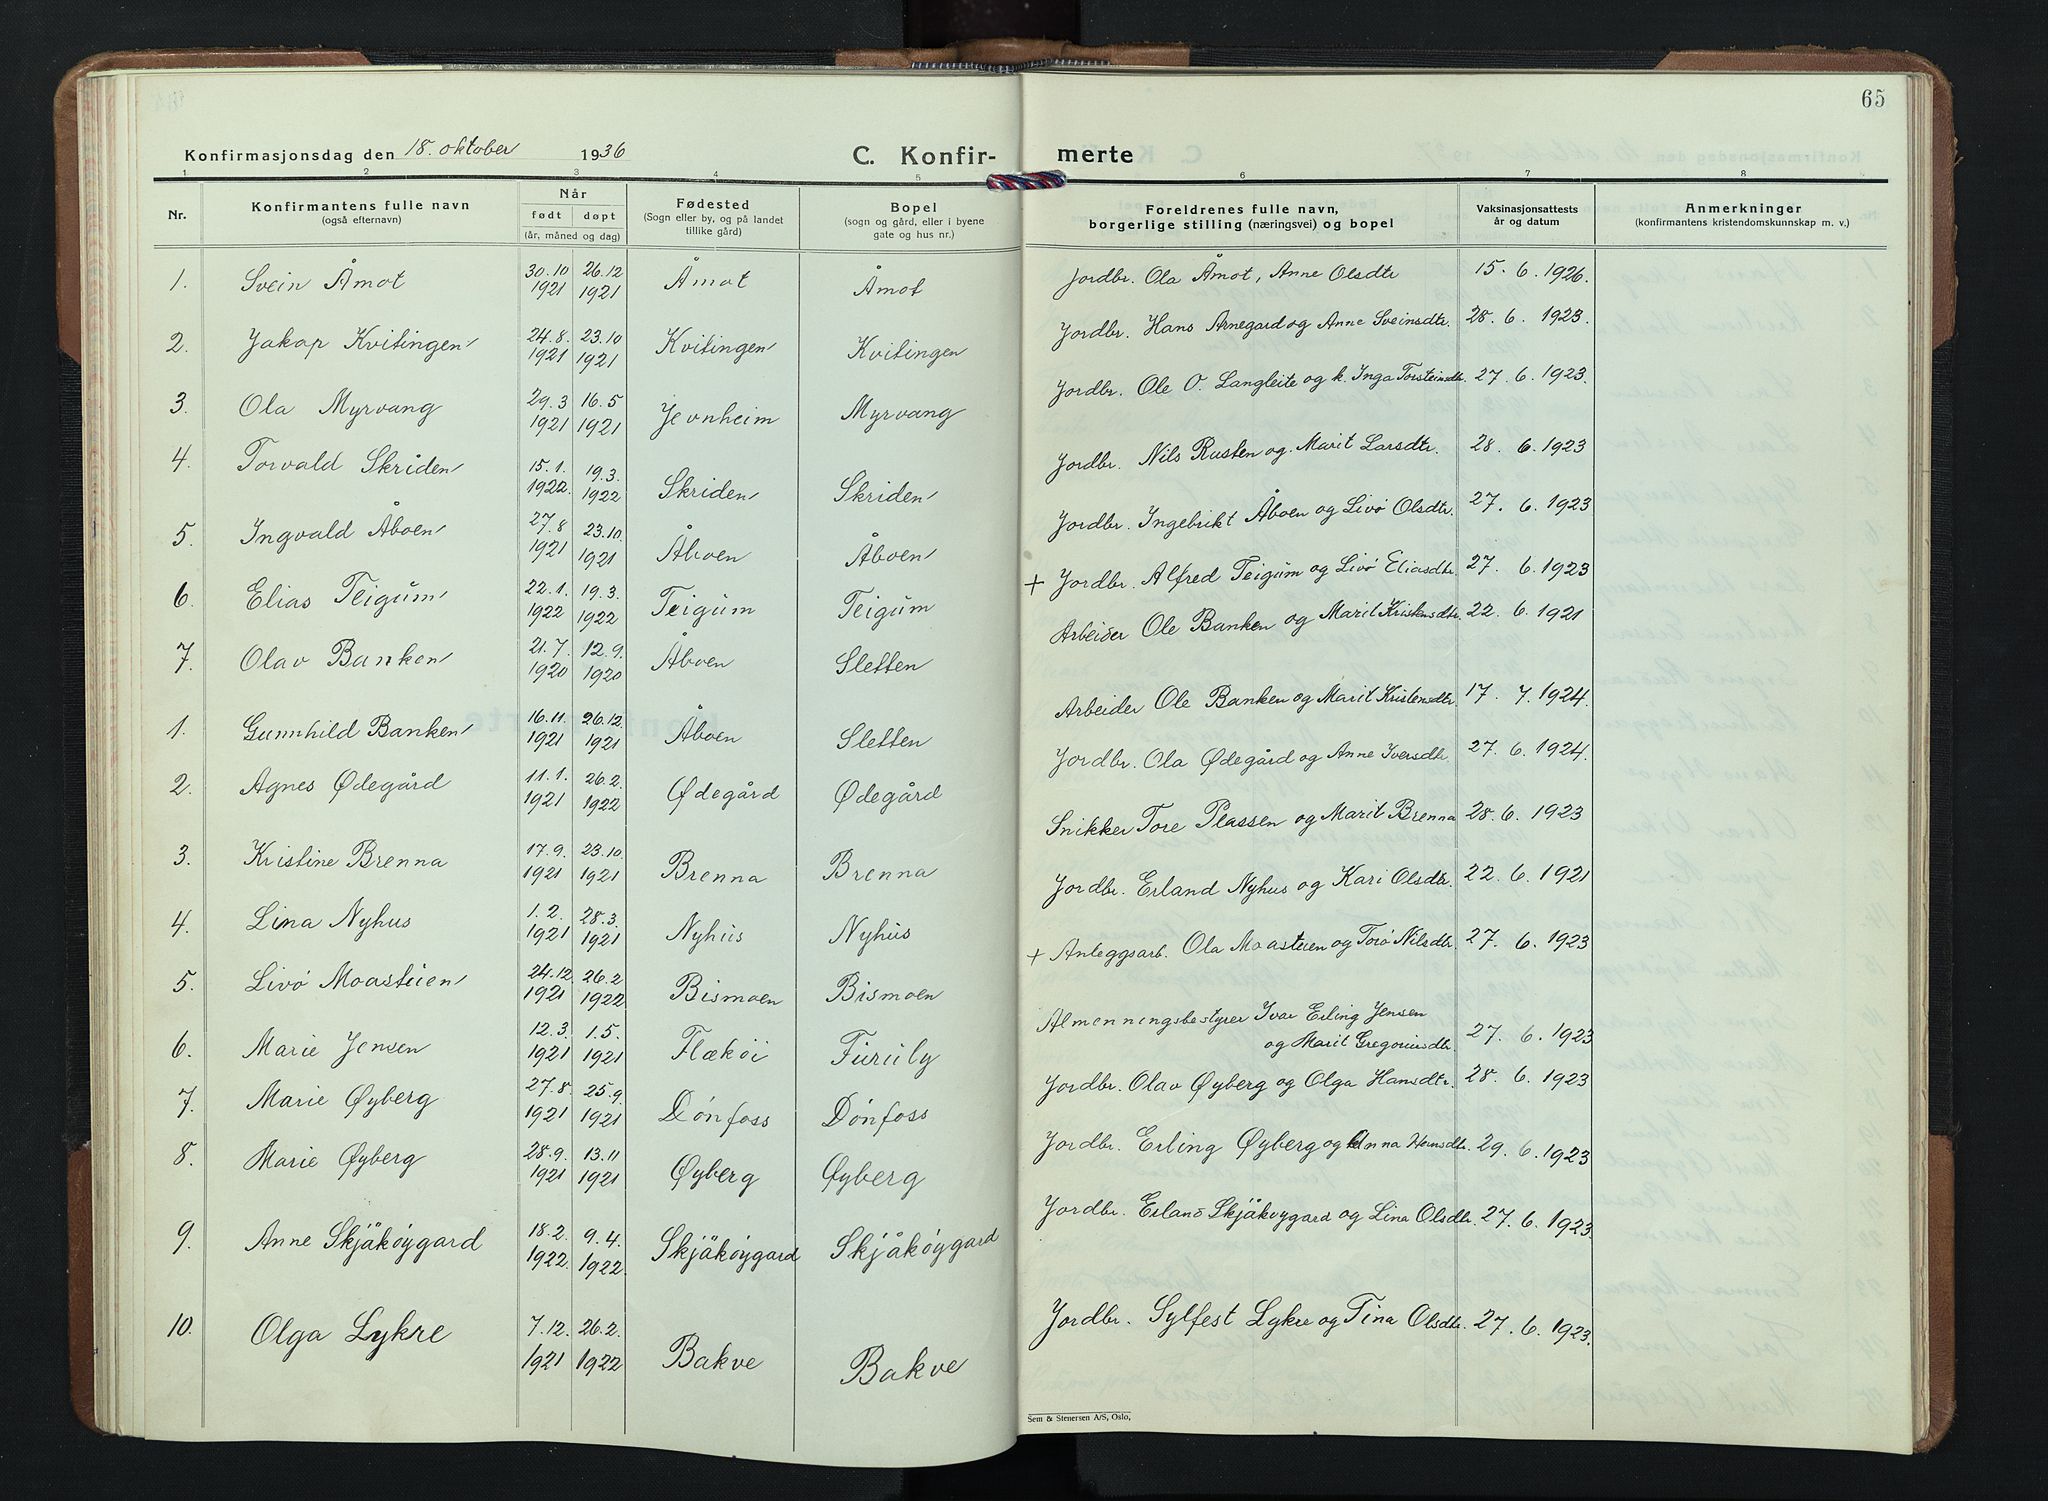 65
Konfirmasjonsdag den 18. oktober 1936
C. Konfir- merte
1 2 3 4 5 6 7 8
Nr.
Konfirmantens fulle navn
(også efternavn)
Når
født døpt
(år, måned og dag)
Fødested
(Sogn eller by, og på landet
tillike gård)
Bopel
(sogn og gård, eller i byene
gate og hus nr.)
Foreldrenes fulle navn,
borgerlige stilling (næringsvei) og bopel
Vaksinasjonsattests
år og datum
Anmerkninger
(konfirmantens kristendomskunnskap m. v.)
1. Svein Åmot 30.10 1921 26.12 1921 Åmot Åmot Jordbr. Ola Åmot, Anne Olsdtr 15. 6. 1926.
2. Jakop Kvitingen 24.8. 1921 23.10 1921 Kvitingen Kvitingen Jordbr. Hans Arnegard og Anne Sveinsdtr. 28. 6. 1923.
3. Ola Myrvang 29.3 1921 16.5 1921 Jevnheim Myrvang Jordbr. Ole O. Langleite og k. Inga Torsteinsdtr. 27. 6. 1923.
4. Torvald Skriden 15.1. 1922. 19.3. 1922 Skriden Skriden Jordbr. Nils Rusten og Marit Larsdtr. 28. 6. 1923
5. Ingvald Åboen 27.8 1921 23.10. 1921 Åboen Åboen Jordbr. Ingebrikt Åboen og Livø Olsdtr. 27. 6. 1923
6. Elias Teigum 22.1. 1922 19.3. 1922 Teigum Teigum + Jordbr. Alfred Teigum og Livø Eliasdtr. 27. 6. 1923
7. Olav Banken 21.7. 1920 12.9. 1920 Åboen Sletten Arbeider Ole Banken og Marit Kristensdtr. 22. 6. 1921
1. Gunnhild Banken 16.11. 1921 26.12. 1921 Åboen Sletten Arbeider Ole Banken og Marit Kristensdtr. 17. 7. 1924.
2. Agnes Ødegård 11.1. 1921 26.2. 1922 Ødegård Ødegård Jordbr. Ola Ødegård og Anne Iversdtr. 27. 6. 1924.
3. Kristine Brenna 17.9. 1921 23.10. 1921 Brenna Brenna Snikker Tore Plassen og Marit Brenna 28. 6. 1923
4. Lina Nyhus 1.2. 1921 28.3. 1921 Nyhus Nyhus Jordbr. Erland Nyhus og Kari Olsdtr. 22. 6. 1921
5. Livø Moasteien 24.12. 1921 26.2 1922 Bismoen Bismoen + Anleggsarb. Ola Moasteien og Torø Nilsdtr. 27. 6. 1923
6. Marie Jensen 12.3. 1921 1.5. 1921 Flækøi Furuly Almenningsbestyrer Ivar Erling Jensen
og Marit Gregoriusdtr. 27. 6. 1923
7. Marie Øyberg 27.8. 1921 25.9. 1921 Dønfoss Dønfoss Jordbr. Olav Øyberg og Olga Hansdtr. 28. 6. 1923
8. Marie Øyberg 28.9. 1921 13.11 1921 Øyberg Øyberg Jordbr. Erling Øyberg og Anna Hansdtr. 29. 6. 1923
9. Anne Skjåkøygard 18.2. 1922. 9.4. 1922. Skjåkøygard Skjåkøygard Jordbr. Erland Skjåkøygard og Lina Olsdtr. 27. 6. 1923
10. Olga Lykre 7.12. 1921 26.2. 1922 Bakve Bakve Jordbr. Sylfest Lykre og Tina Olsdtr. 27. 6. 1923.
Sem & Stenersen A/S, Oslo.